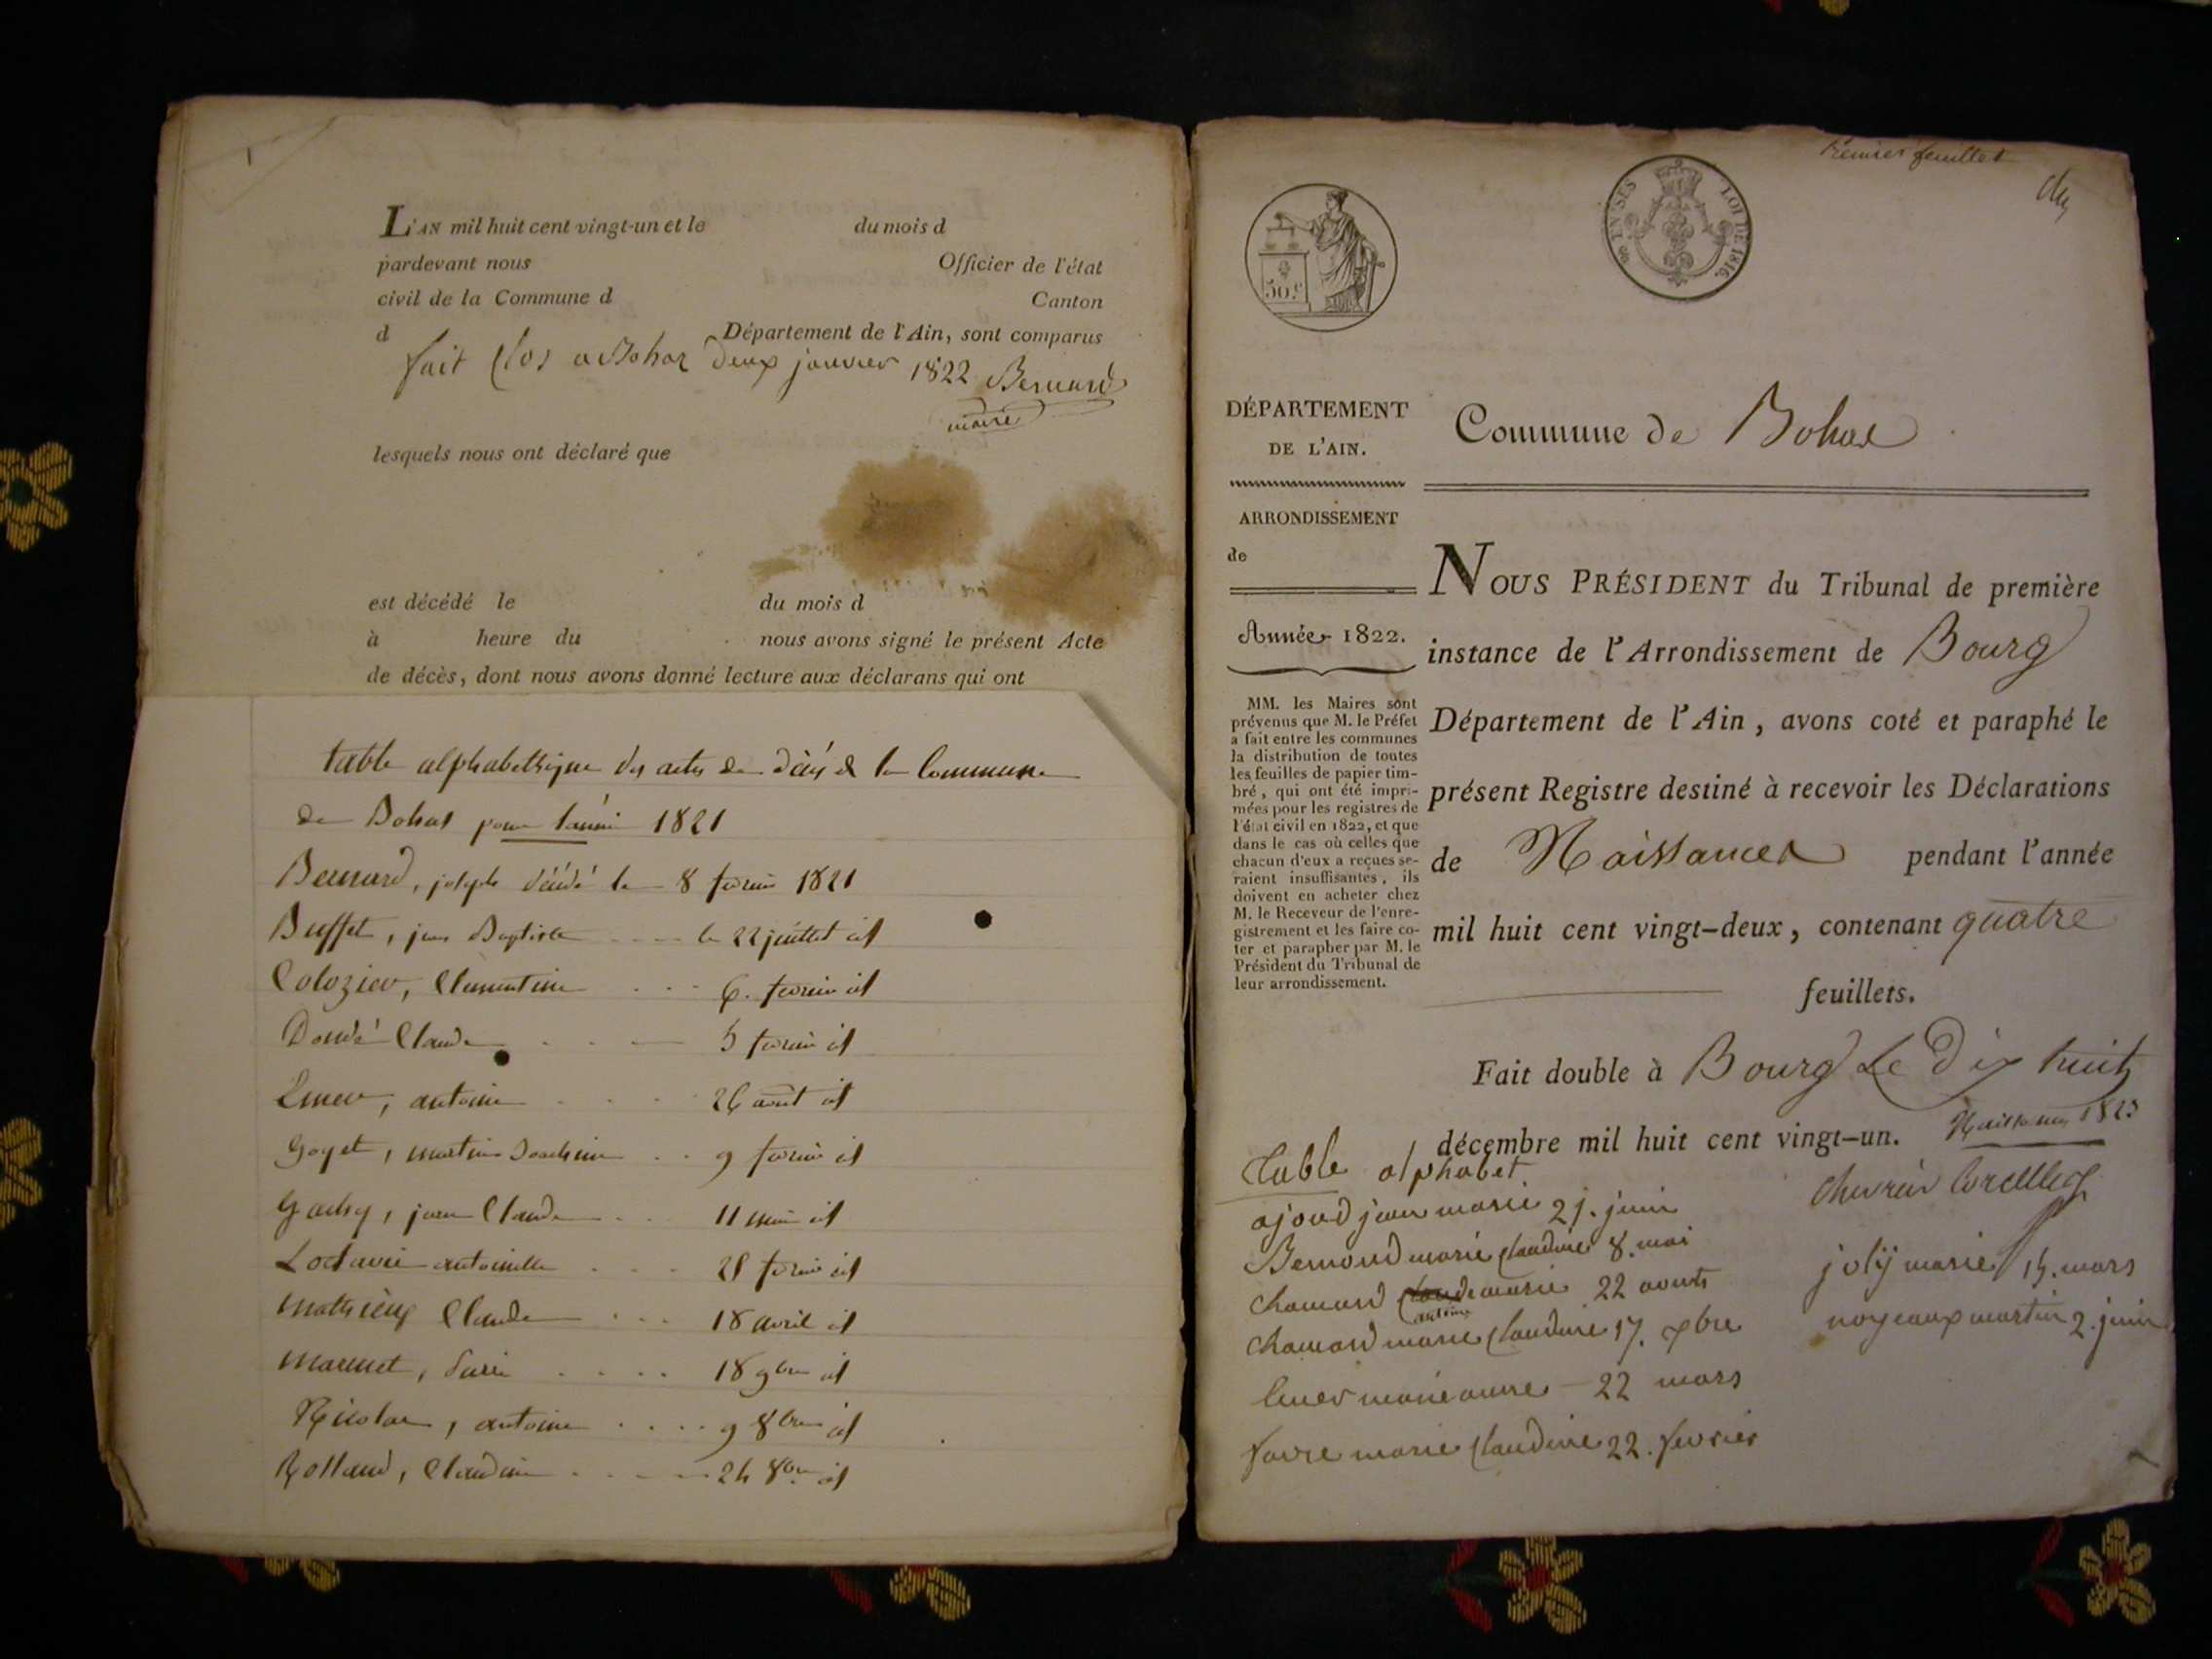 L'AN mil huit cent vingt-un et le du mois d
pardevant nous Officier de l'état
civil de la Commune d Canton
d Département de l'Ain, sont comparus
fait Clos a Bohaz Deux janvier 1822 Bernard
maire
lesquels nous ont déclaré que
est décédé le du mois d
à heure du nous avons signé le présent Acte
de décès, dont nous avons donné lecture aux déclarans qui ont
table alphabethique des actes de décés de la Commune
de Bohas pour l'année 1821
Bernard, joseph décédé le 8 fevrier 1821
Buffet, jean Baptiste le 22 juillet id
Clementine 6. fevrier id
Claude 5 fevrier id
antoine 26 août id
Goyet, martin Joachim 9 fevrier id
jean Claude 11 mai id
antoinette 28 fevrier id
Mathieux Claude 18 avril id
Marmet, 18 9bre id
Nicolas, antoine 9 8bre id
Rolland, Claudine 24 8bre id
Premier feuillet
50.c
EN SUS
LOI DE 1816.
DÉPARTEMENT
DE L'AIN.
Commune de Bohas
ARRONDISSEMENT
de
Année 1822.
MM. les Maires sont
prévenus que M. le Préfet
a fait entre les communes
la distribution de toutes
les feuilles de papier tim-
bré, qui ont été impri-
mées pour les registres de
l'état civil en 1822, et que
dans le cas où celles que
chacun d'eux a reçues se-
raient insuffisantes, ils
doivent en acheter chez
M. le Receveur de l'enre-
gistrement et les faire co-
ter et parapher par M. le
Président du Tribunal de
leur arrondissement.
NOUS PRÉSIDENT du Tribunal de première
instance de l'Arrondissement de Bourg
Département de l'Ain, avons coté et paraphé le
présent Registre destiné à recevoir les Déclarations
de Naissances pendant l'année
mil huit cent vingt-deux, contenant quatre
feuillets.
Fait double à Bourg Le Dix huit
décembre mil huit cent vingt-un.
Naissances
Table alphabet
Chevrier Corcelles
ajoud jean marie 21. juin
Bernard marie Claudine 8. mai
Chanard Claude marie 22 aout
antoine
Chanard marie Claudine 17. 7bre
marie anne 22 mars
favre marie Claudine 22. fevrier
jolij marie 15. mars
noyeaux martin 2. juin